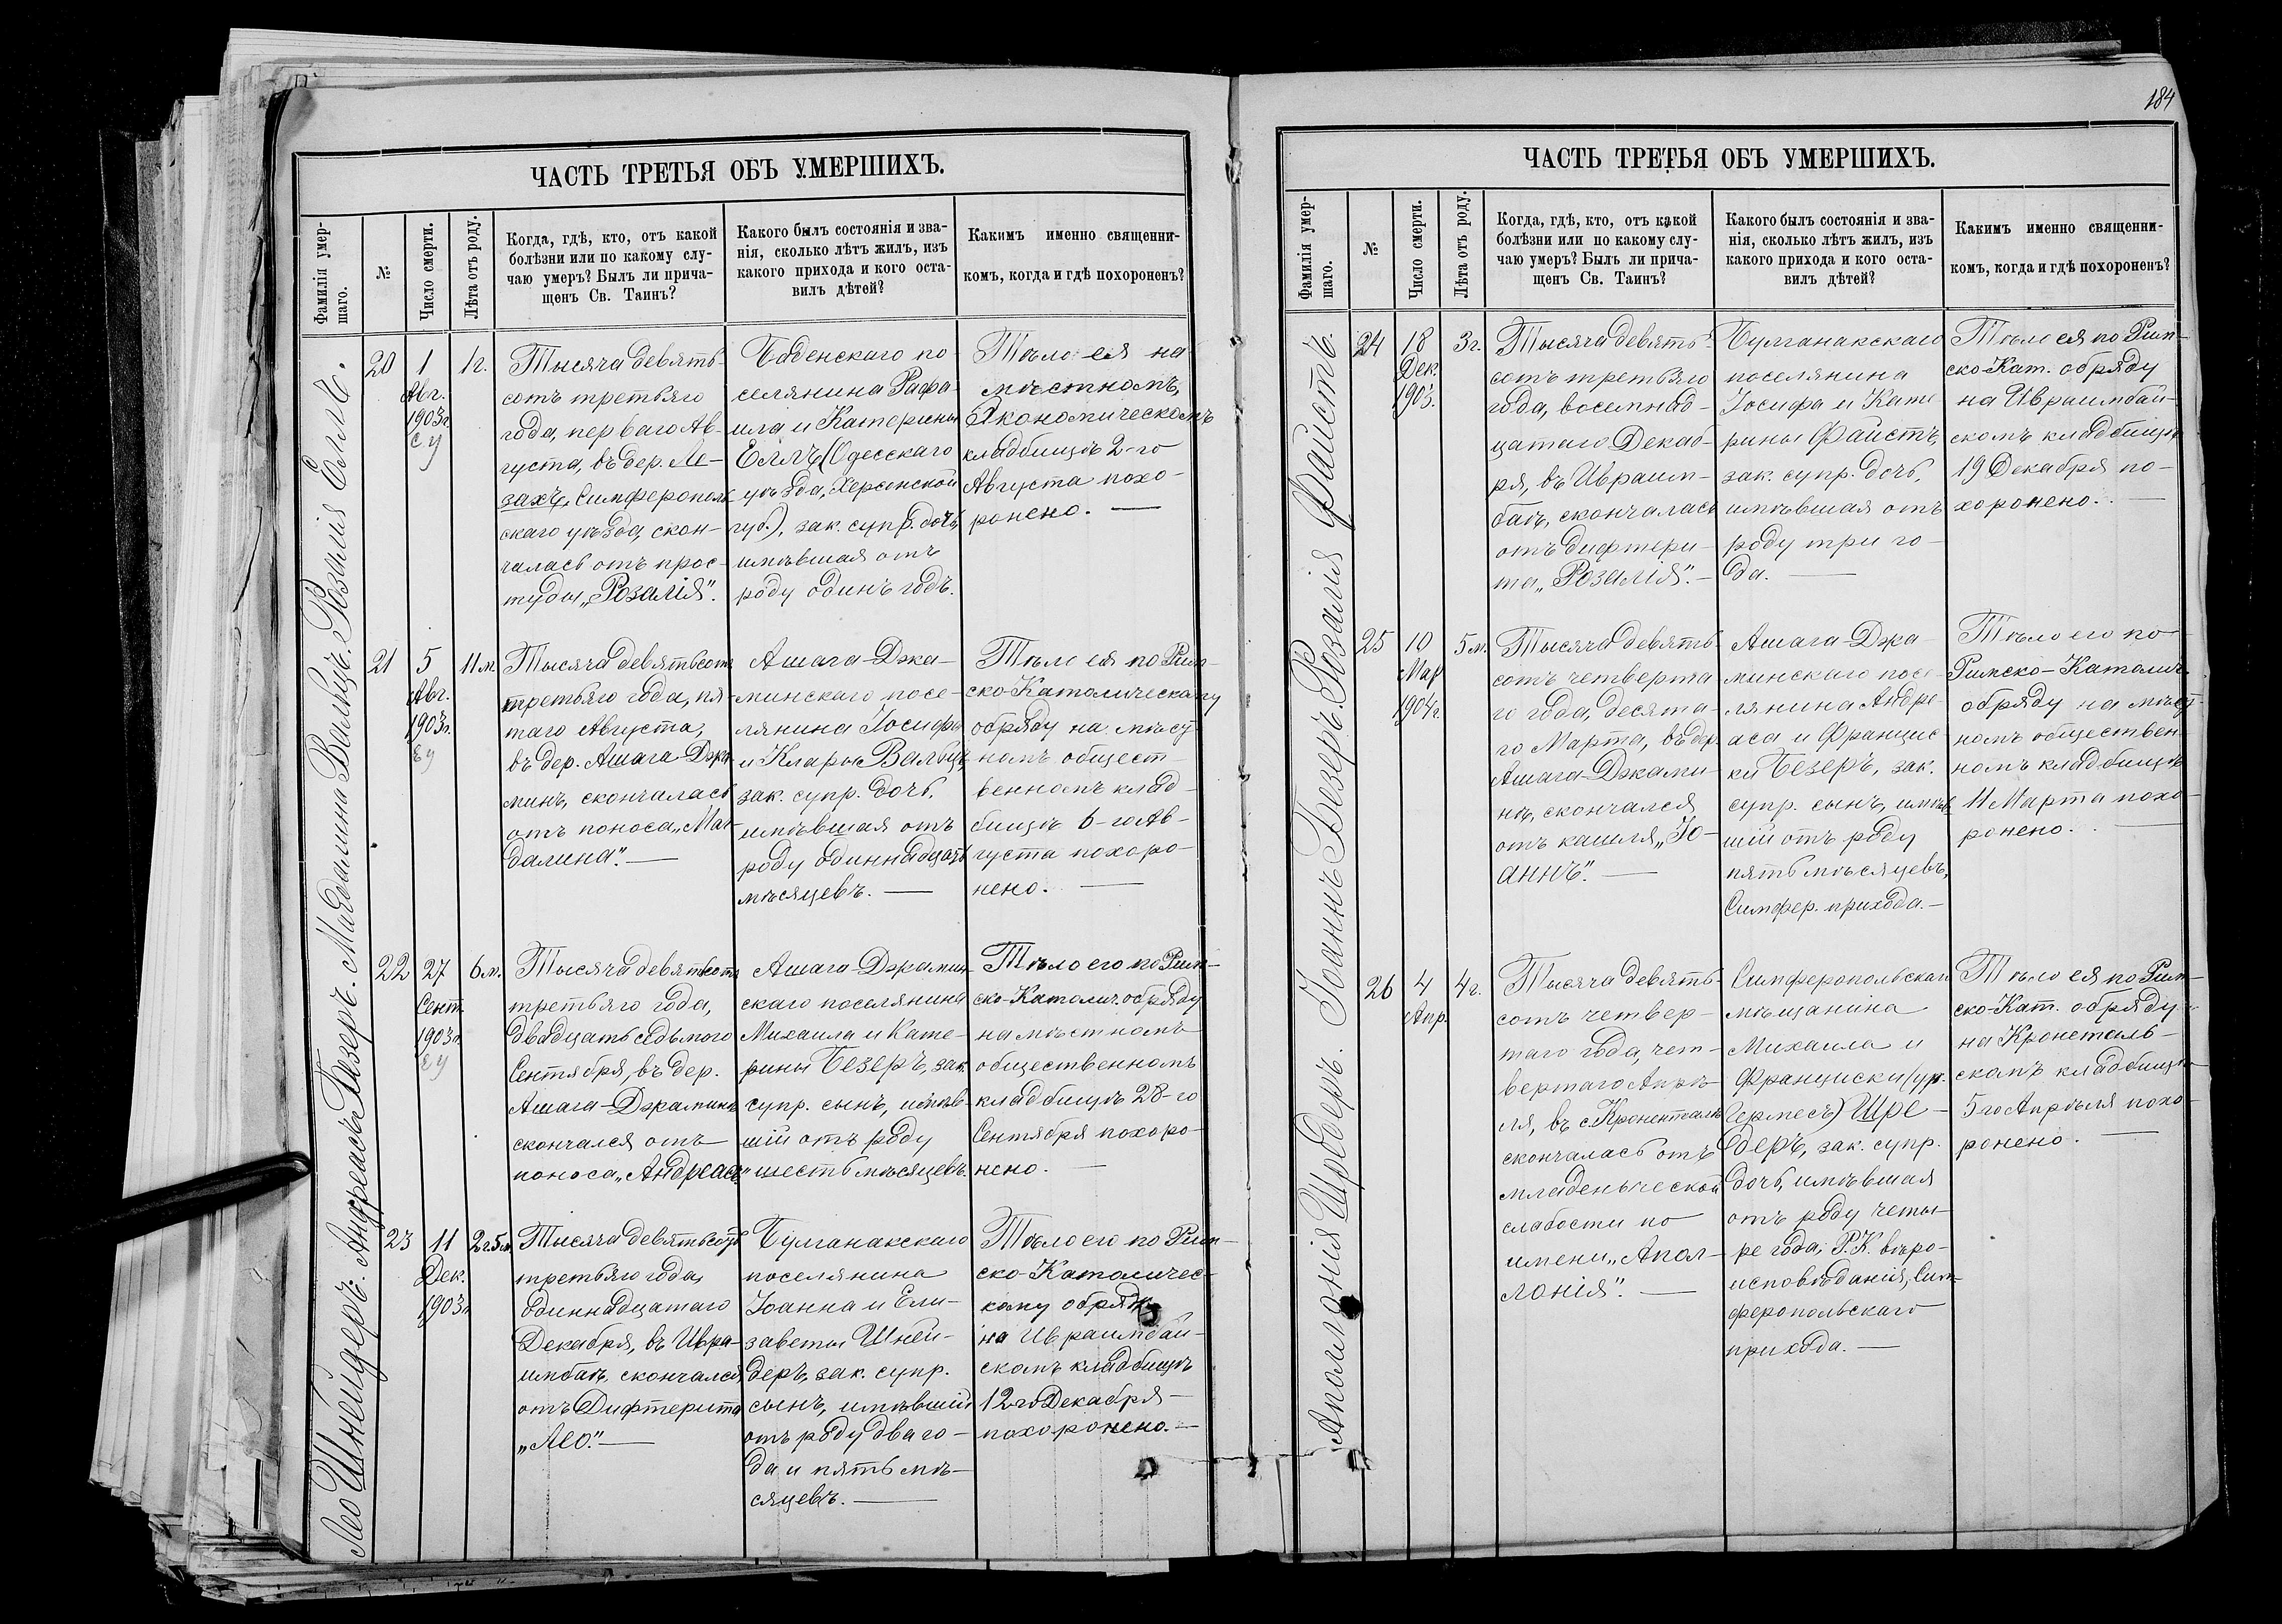 184
ЧАСТЬ ТРЕТЬЯ ОБЪ УМЕРШИХЪ.
Фамилія умер-
шаго.
№
Число смерти.
Лѣта отъ роду.
Когда, гдѣ, кто, отъ какой
болѣзни или по какому слу-
чаю умеръ? Былъ ли прича-
щенъ Св. Таинъ?
Какого былъ состоянія и зва-
нія, сколько лѣтъ жилъ, изъ
какого прихода и кого оста-
вилъ дѣтей?
Какимъ именно священни-
комъ, когда и гдѣ похороненъ?
Розалія Еллъ.
20
1
Авг.
1903г.
1г.
Тысяча девять-
сотъ третьяго
года, перваго Ав-
густа, въ дер. Ле-
захъ, Симферополь
скаго уѣзда, скон-
чалась отъ прос-
туды „Розалія".
Баденскаго по-
селянина Рафа-
ила и Катерины
Еллъ (Одесскаго
уѣзда, Херсонской
губ.), зак. супр. дочь,
имѣвшая отъ
роду одинъ годъ.
Тѣло ея на
мѣстномъ,
Экономическомъ
кладбищѣ 2-го
Августа похо-
ронено. —
Магдалина Вальцъ.
21
5
Авг.
1903г.
11м.
Тысяча девятьсотъ
третьяго года, пя-
таго Августа,
въ дер. Ашага-Джа-
минъ, скончалась
отъ поноса „Маг-
далина". —
Ашага-Джа-
минскаго посе-
лянина Іосифа
и Клары Вальцъ,
зак. супр. дочь,
имѣвшая отъ
роду одиннадцать
мѣсяцевъ. —
Тѣло ея по Рим-
ско-Католическому
обряду на мѣст-
номъ общест-
венномъ клад-
бищѣ 6-го Ав-
густа похоро-
нено. —
Андреасъ Безеръ.
22
27
Сент.
1903г.
6м.
Тысяча девятьсотъ
третьяго года,
двадцать седьмого
Сентября, въ дер.
Ашага-Джаминъ
скончался отъ
поноса „Андреасъ"
Ашага-Джамин-
скаго поселянина
Михаила и Кате-
рины Безеръ, зак.
супр. сынъ, имѣв-
шій отъ роду
шесть мѣсяцевъ.
Тѣло его по Рим-
ско-Католич. обряду
на мѣстномъ
общественномъ
кладбищѣ 28-го
Сентября похоро-
нено. —
Лео Шнейдеръ.
23
11
Дек.
1903г.
2г.5м.
Тысяча девятьсотъ
третьяго года,
одиннадцатаго
Декабря, въ Ивра-
имбаѣ, скончался
отъ Дифтерита
„Лео". —
Булганакскаго
поселянина
Іоанна и Ели-
заветы Шней-
деръ, зак. супр.
сынъ, имѣвшій
отъ роду два го-
да и пять мѣ-
сяцевъ. —
Тѣло его по Рим-
ско-Католичес-
кому обряду
на Ивраимбай-
скомъ кладбищѣ
12го Декабря
похоронено. —
ЧАСТЬ ТРЕТЬЯ ОБЪ УМЕРШИХЪ.
Фамилія умер-
шаго.
№
Число смерти.
Лѣта отъ роду.
Когда, гдѣ, кто, отъ какой
болѣзни или по какому слу-
чаю умеръ? Былъ ли прича-
щенъ Св. Таинъ?
Какого былъ состоянія и зва-
нія, сколько лѣтъ жилъ, изъ
какого прихода и кого оста-
вилъ дѣтей?
Какимъ именно священни-
комъ, когда и гдѣ похороненъ?
Розалія Файстъ.
24
18
Дек.
1903.
3г.
Тысяча девять-
сотъ третьяго
года, восемнад-
цатаго Декаб-
ря, въ Ивраим-
баѣ, скончалась
отъ дифтери-
та „Розалія". —
Булганакскаго
поселянина
Іосифа и Кате
рины Файстъ,
зак. супр. дочь,
имѣвшая отъ
роду три го-
да. —
Тѣло ея по Рим-
ско-Кат. обряду
на Ивраимбай-
скомъ кладбищѣ
19 Декабря по-
хоронено. —
Іоаннъ Безеръ
25
10
Мар
1904г.
5м.
Тысяча девять-
сотъ четверта
го года, десята-
го Марта, въ дер.
Ашага-Джами-
нѣ, скончался
отъ кашля „Іо-
аннъ". —
Ашага-Джа-
минскаго посе-
лянина Андре-
аса и Францис-
ки Безеръ, зак.
супр. сынъ, имѣв
шій отъ роду
пять мѣсяцевъ,
Симфер. прихода. —
Тѣло его по
Римско-Католич.
обряду на мѣст-
номъ обществен-
номъ кладбищѣ
11 Марта похо-
ронено. —
Аполлонія Шрёдеръ.
26
4
Апр.
4г.
Тысяча девять-
сотъ четвер-
таго года, чет-
вертаго Апрѣ-
ля, въ с. Кроненталѣ
скончалась отъ
младенческой
слабости по
имени „Апол-
лонія". —
Симферопольскаго
мѣщанина
Михаила и
Франциски (ур.
Гермесъ) Шре-
деръ, зак. супр.
дочь, имѣвшая
отъ роду четы-
ре года, Р.К. вѣро-
исповѣданія, Сим-
феропольскаго
прихода. —
Тѣло ея по Рим-
ско-Кат. обряду
на Кронеталь-
скомъ кладбищѣ
5го Апрѣля похо-
ронено. —